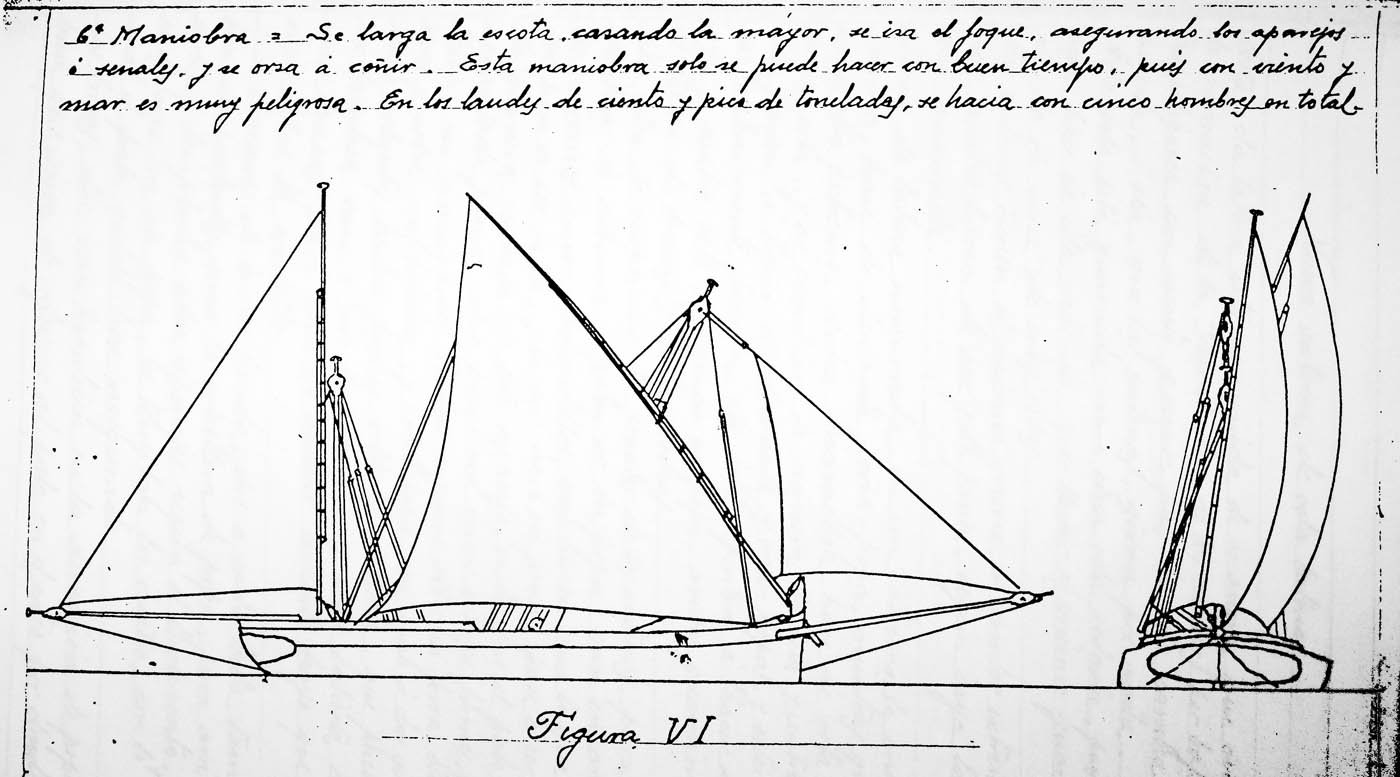 6ª Maniobra = Se larga la escota, casando la mayor, se iza el foque, asegurando los aparejos
ó senales, y se orsa á ceñir. Esta maniobra solo se puede hacer con buen tiempo, pués con viento y
mar es muy peligrosa. En los laudes de ciento y pico de toneladas, se hacia con cinco hombres en total.
Figura VI